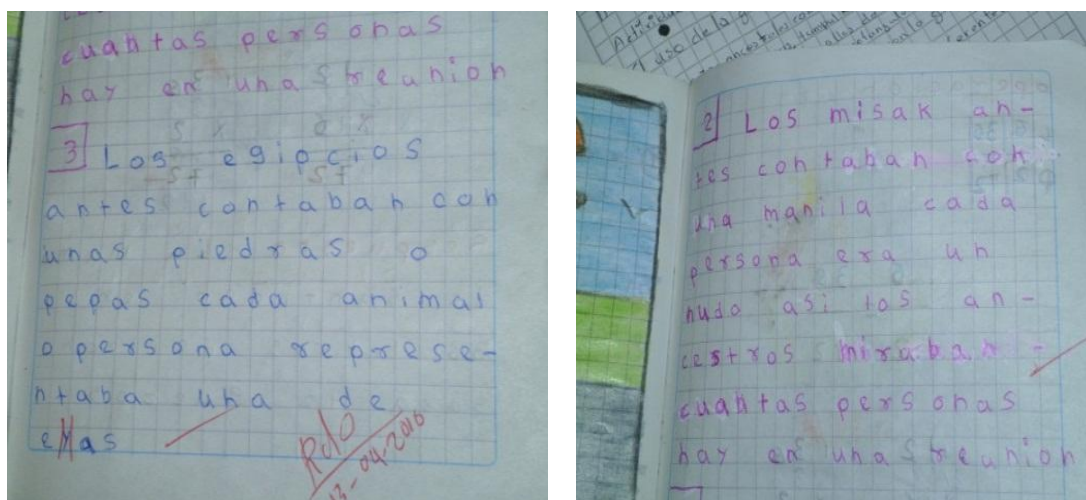 cuantas personas
hay en una reunion
3 Los egipcios
antes contaban con
unas piedras o
pepas cada animal
o persona represe-
ntaba una de
ellas
2 Los misak an-
tes contaban con
una manila cada
persona era un
nudo asi los an-
cestros miraban
cuantas personas
hay en una reunion